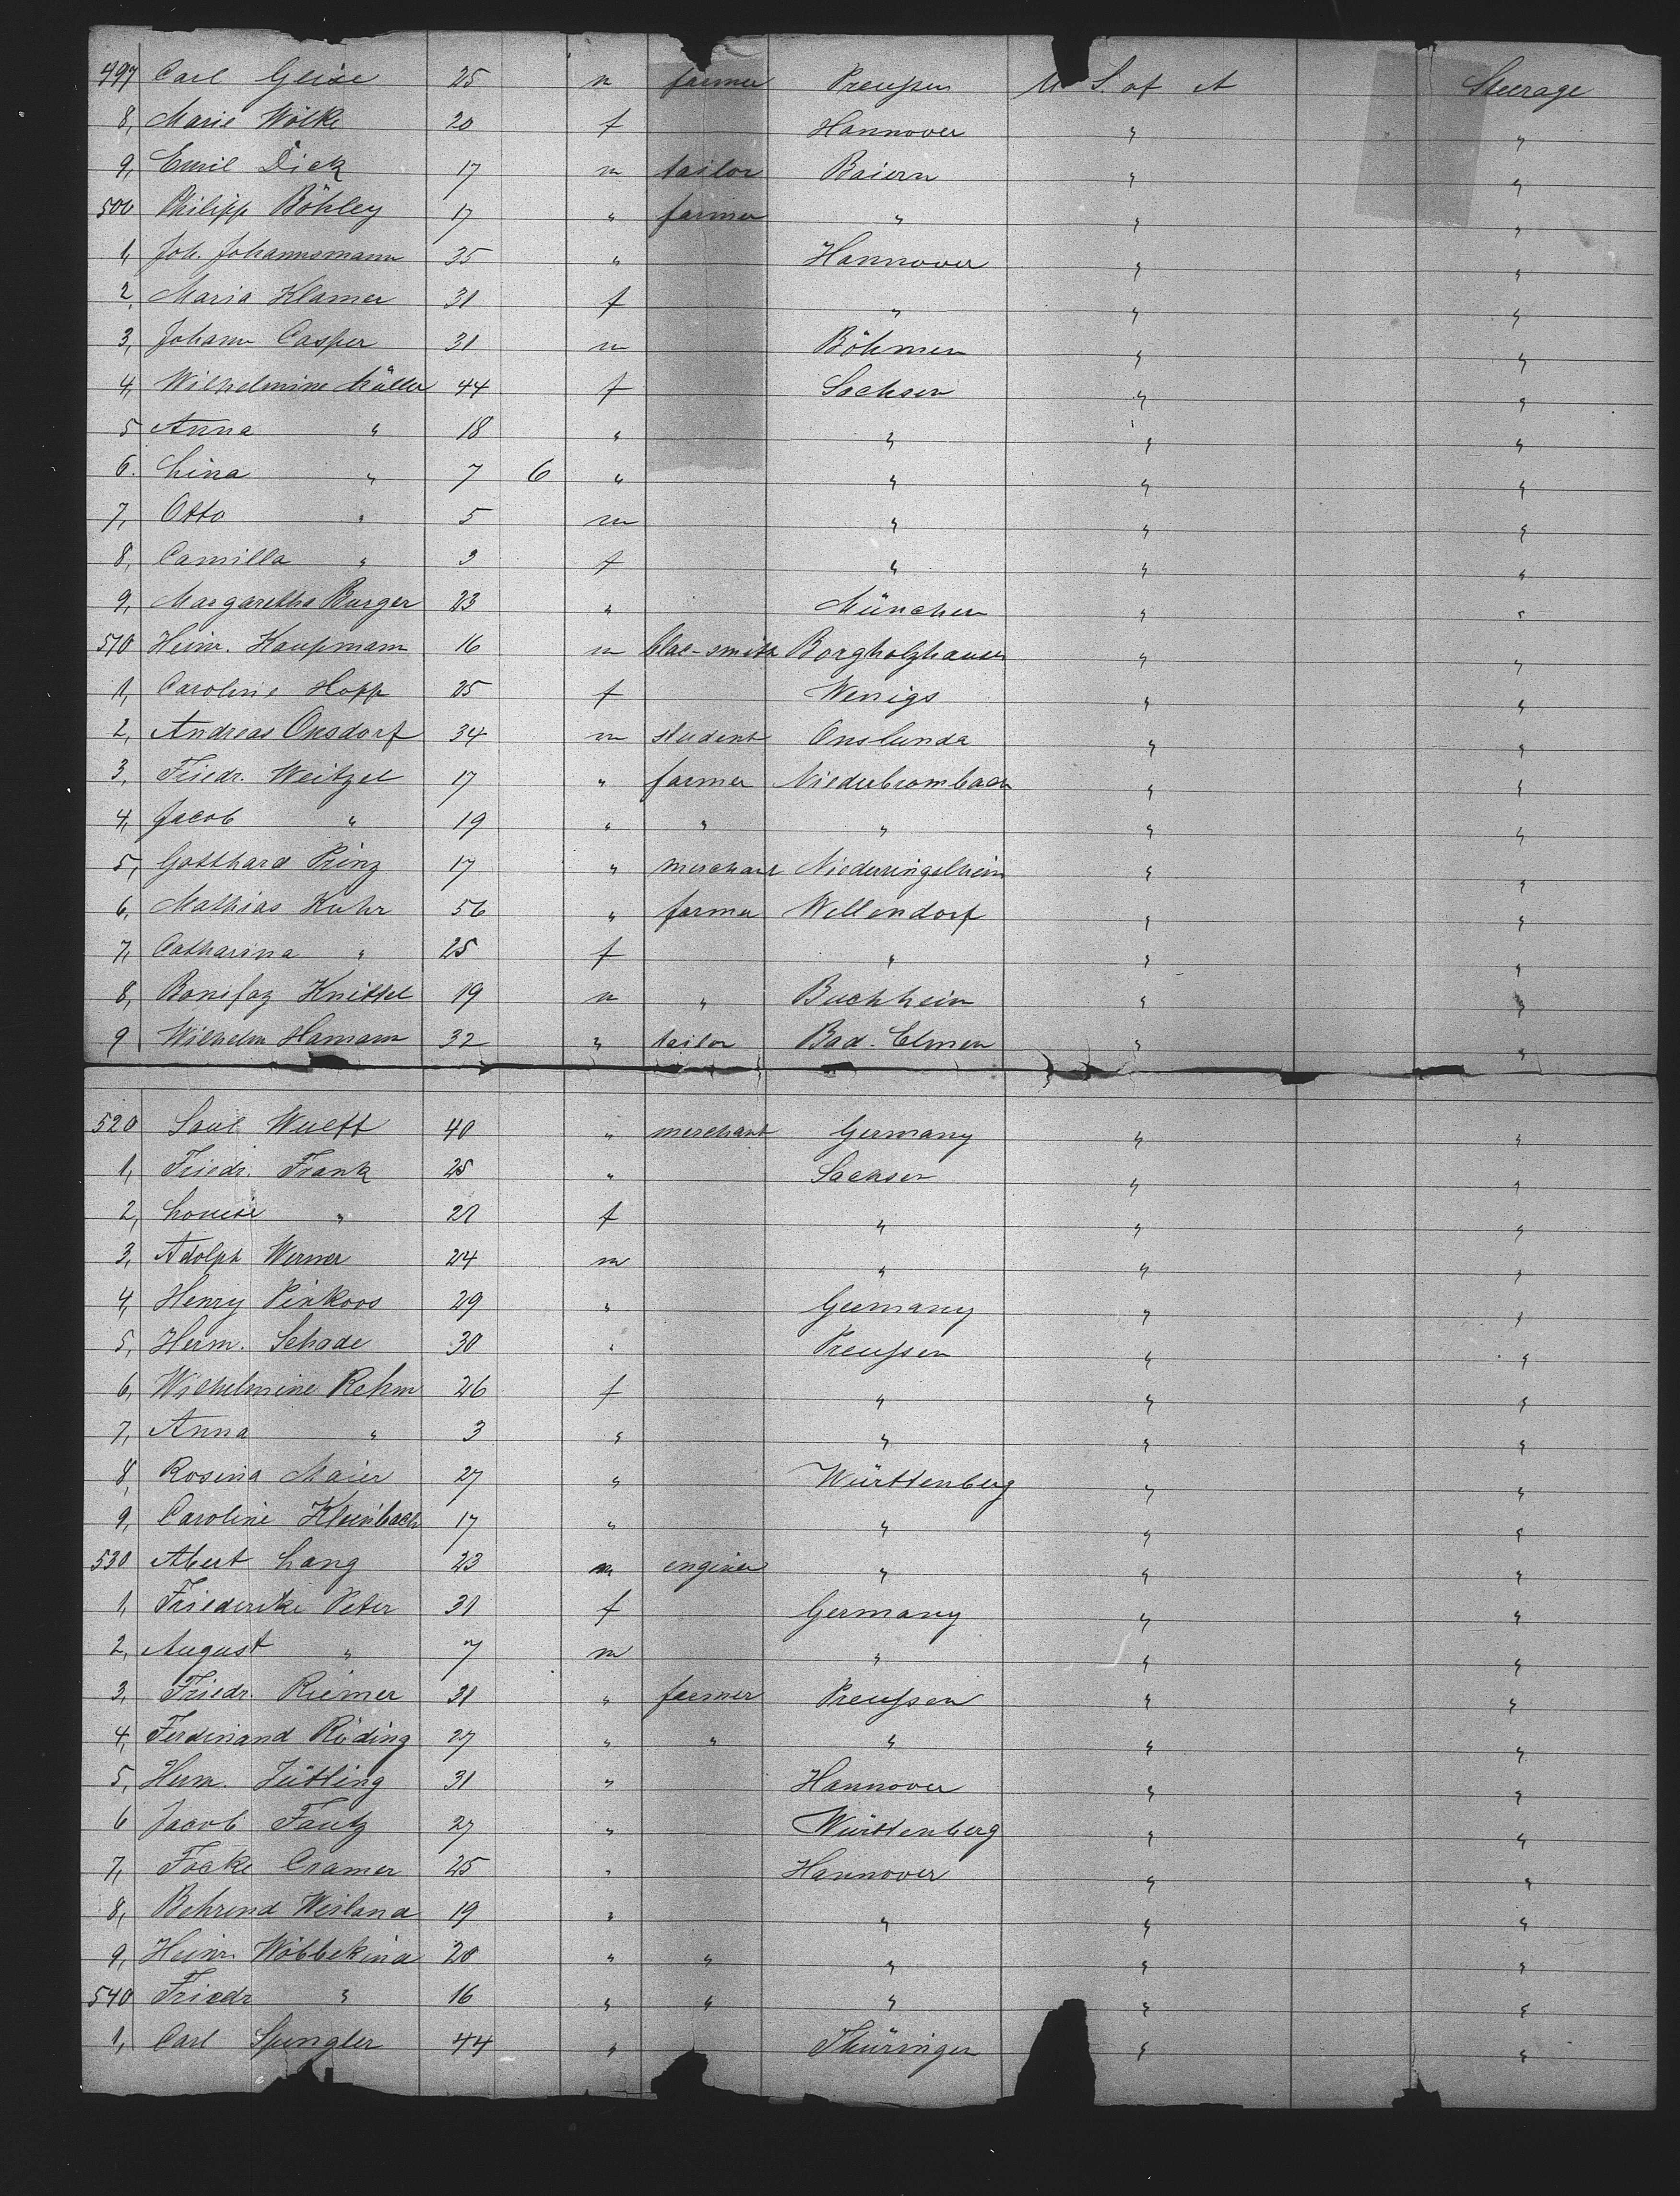 497 Carl Geise 25 m farmer Preußen U. S. of A Steerage
8, Marie Wölke 20 f Hannover " "
9, Emil Dick 17 m tailor Baiern " "
500 Philipp Böhley 17 " farmer " " "
1, Joh. Johannsmann 35 " Hannover " "
2, Maria Klamer 31 f " " "
3, Johann Casper 31 m Böhmen " "
4, Wilhelmine Müller 44 f Sachsen " "
5 Anna " 18 " " " "
6. Lina " 7 6 " " " "
7, Otto " 5 m " " "
8, Camilla " 3 f " " "
9, Margaretha Burger 23 " München " "
510 Heinr. Kaupmann 16 m blac-smith Borgholzhausen " "
1, Caroline Hopp 25 f Wenigs " "
2, Andreas Onsdorf 34 m student Onslunda " "
3, Friedr. Weitzel 17 " farmer Niederbrombach " "
4, Jacob " 19 " " " " "
5, Gotthard Prinz 17 " merchant Niederingelheim " "
6, Mathias Kuhr 56 " farmer Wellendorf " "
7, Catharina " 25 f " " "
8, Bonifaz Knittel 19 m " Buchheim " "
9 Wilhelm Hamann 32 " tailor Bad-Elmen " "
520 Saul Wulff 40 " merchant Germany " "
1, Friedr. Frank 25 " Sachsen " "
2, Louise " 21 f " " "
3, Adolph Werner 24 m " " "
4, Henry Pinkoos 29 " Germany " "
5, Herm. Schade 30 " Preußen " "
6, Wilhelmine Rehm 26 f " " "
7, Anna " 3 " " " "
8, Rosina Maier 27 " Württenberg " "
9, Caroline Kleinbach 17 " " " "
530 Abert Lang 23 m enginer " " "
1, Friederike Peter 31 f Germany " "
2, August " 7 m " " "
3, Friedr. Riemer 31 " farmer Preußen " "
4, Ferdinand Röding 27 " " " " "
5, Herm. Jütting 31 " Hannover " "
6 Jacob Fautz 27 " Württenberg " "
7, Focke Cramer 25 " Hannover " "
8, Behrend Weiland 19 " " " "
9, Heinr. Wöbbekind 20 " " " " "
540 Friedr " 16 " " " " "
1, Carl Spengler 44 " Thüringen " "